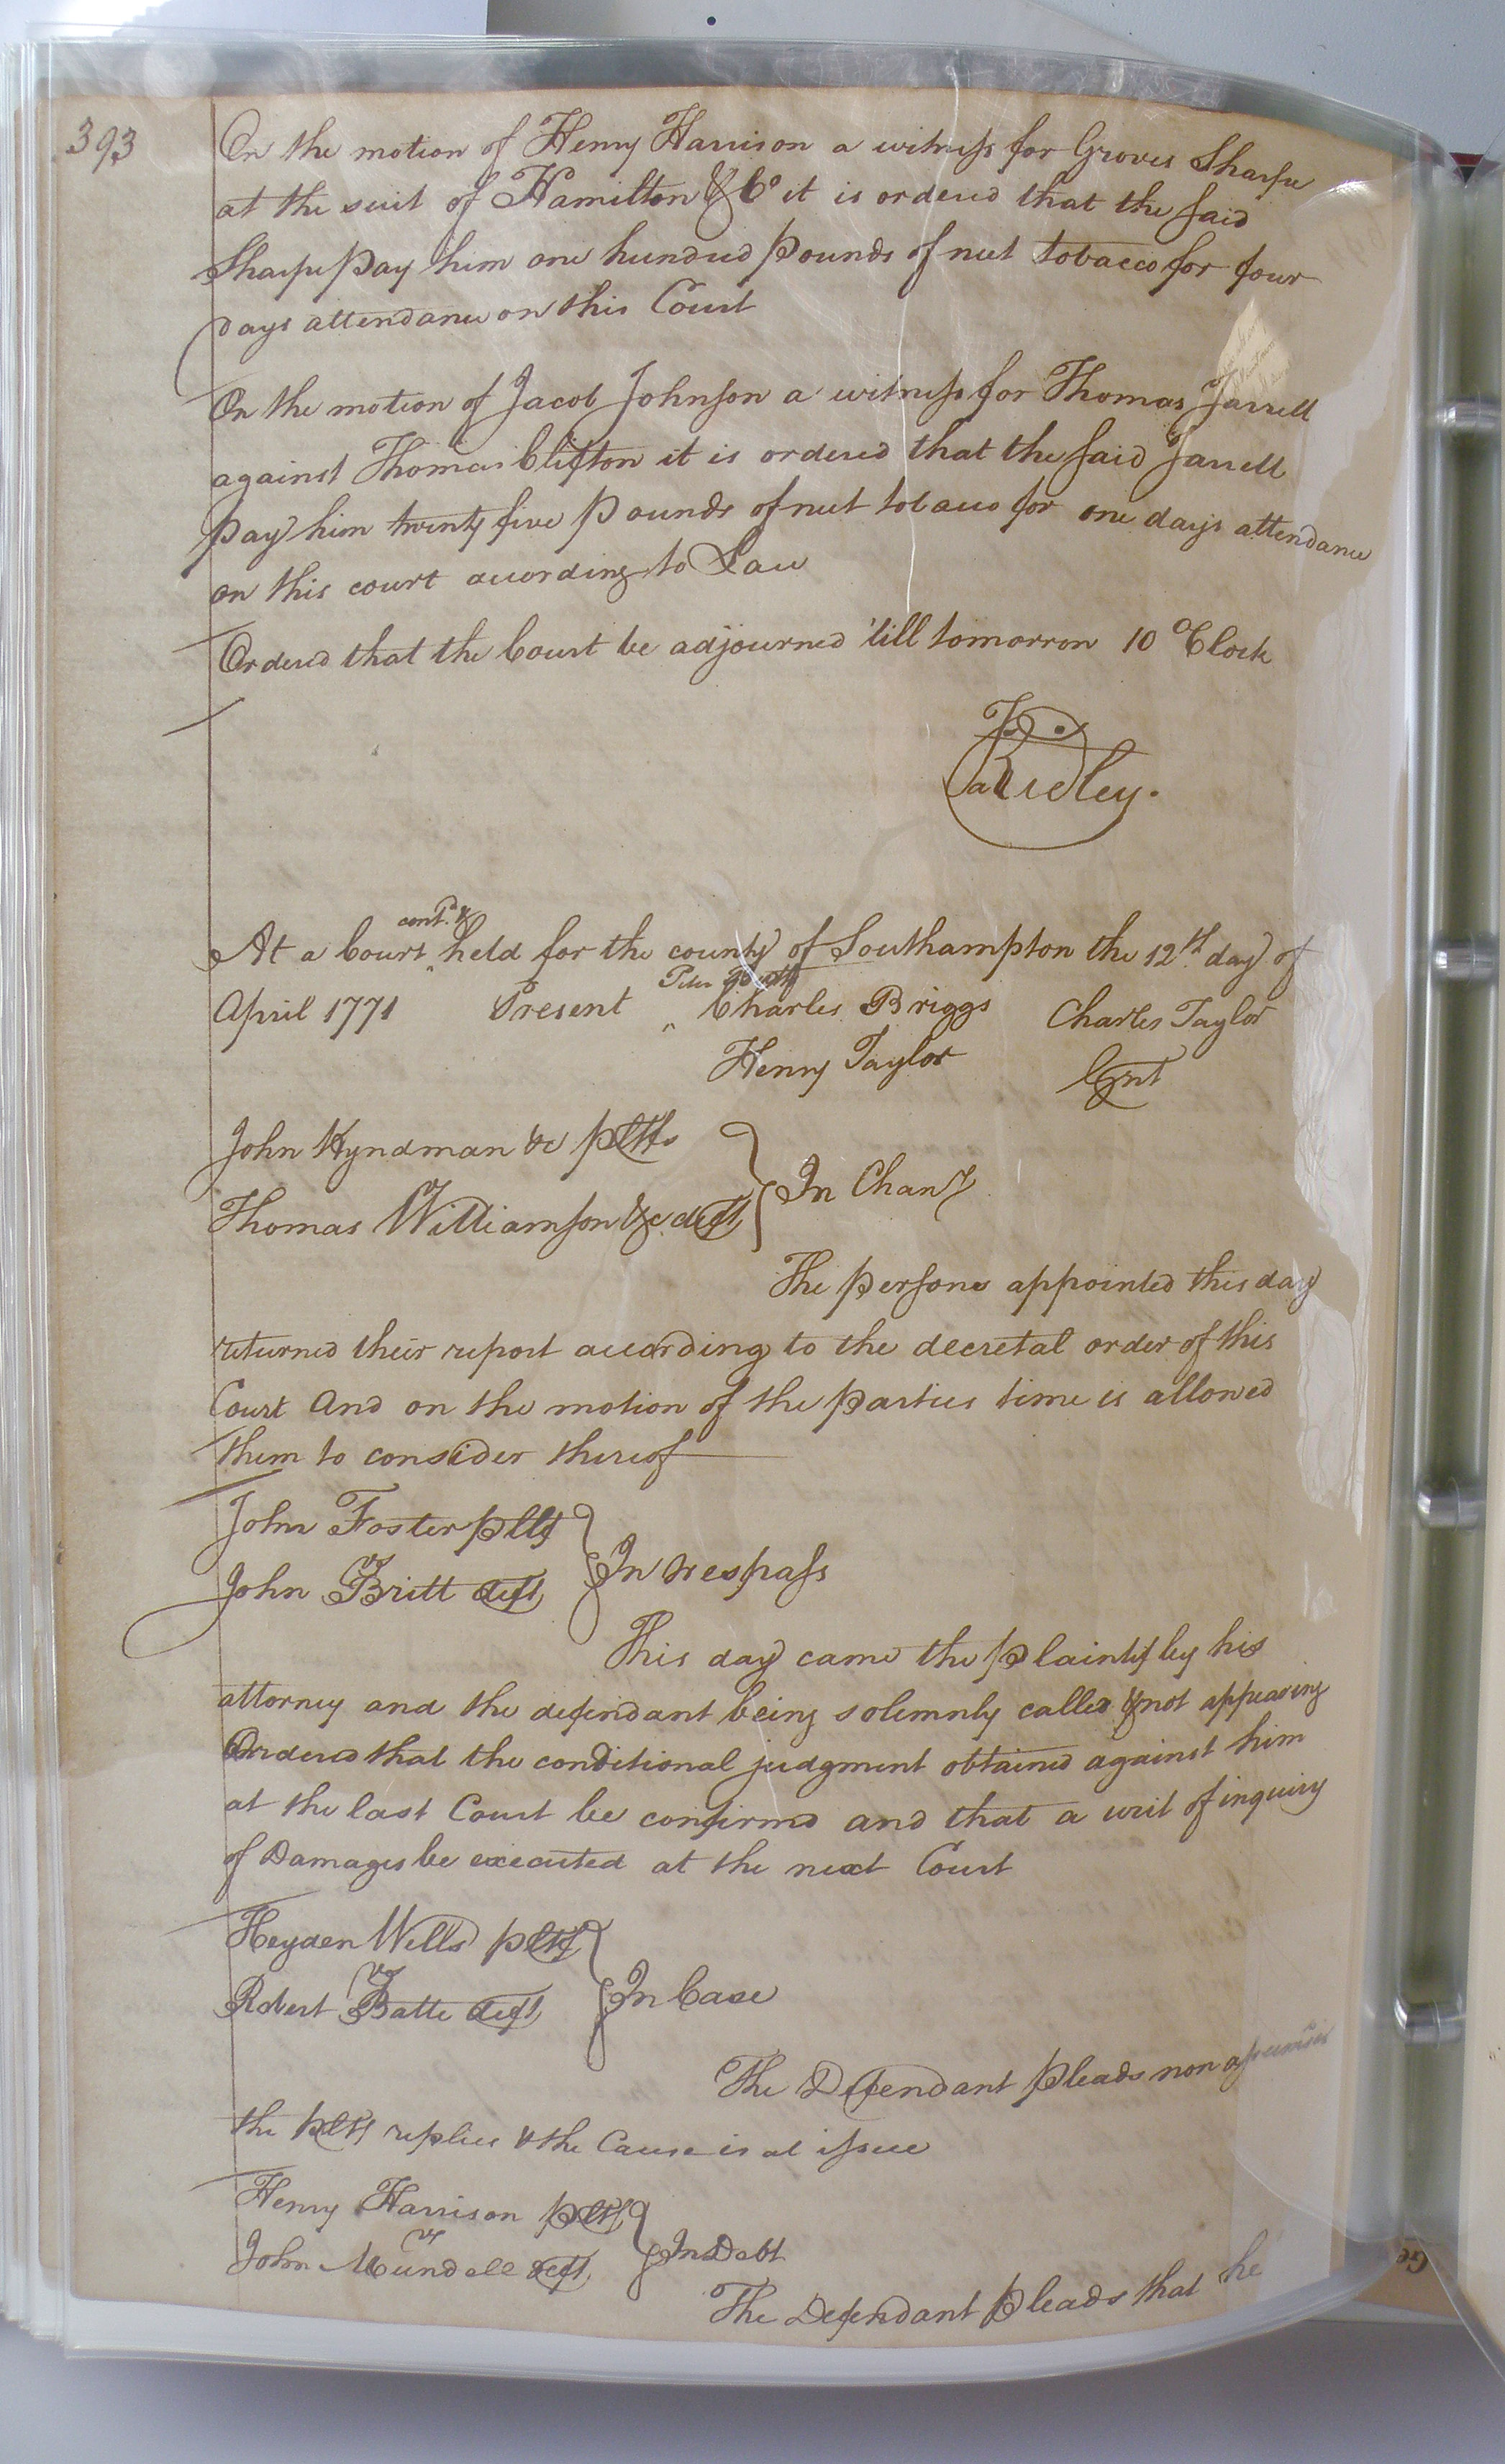 393
On the motion of Henry Harrison a witness for Groves Sharpe
at the suit of Hamilton & Co it is ordered that the said
Sharpe pay him one hundred pounds of nett tobacco for four
days attendance on this Court
On the motion of Jacob Johnson a witness for Thomas Jarrell
against Thomas Clifton it is ordered that the said Jarrell
pay him twenty five pounds of nett tobacco for one days attendance
on this court according to Law
Ordered that the Court be adjourned 'till tomorrow 10 OClock
Ridley.
contd. &
At a Court held for the county of Southampton the 12th day of
Peter
April 1771 Present Charles Briggs Charles Taylor
Henry Taylor Gent
John Hyndman &c pltfs
Thomas Williamson &c deft
In Chany
The persons appointed this day
returned their report according to the decretal order of this
Court and on the motion of the parties time is allowed
them to consider thereof
John Foster pltf
vs
John Britt deft
In trespass
This day came the plaintif by his
attorney and the defendant being solemnly called & not appearing
Ordered that the conditional judgment obtained against him
at the last Court be confirmed and that a writ of inquiry
of Damages be executed at the next Court
Heyden Wells pltf
vs
Robert Batte deft
In Case
The Defendant pleads non
the pltf replies & the Cause is at issue
Henry Harrison pltf
vs
John Mundell deft
In Debt
The Defendant pleads that he